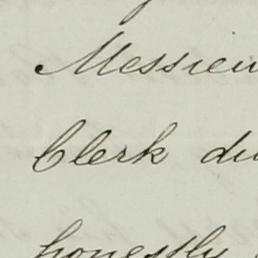 Messieu
Clerk du
honestly